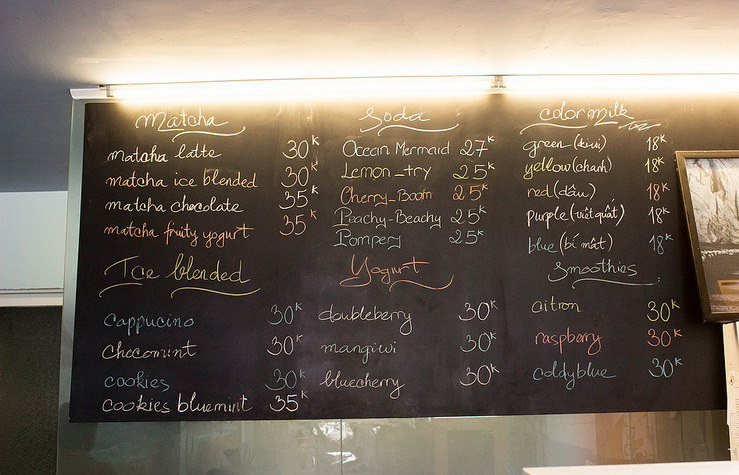 Matcha
matcha latte 30K
matcha ice blended 30K
matcha chocolate 35K
matcha fruity yogurt 35K
Ice blended
cappucino 30K
chocomint 30K
cookies 30K
cookies bluemint 35K
Soda
Ocean Mermaid 27K
Lemon_try 25K
Cherry-Boom 25K
Peachy-Beachy 25K
Pompery 25K
Yogurt
doubleberry 30K
mangiwi 30K
bluecherry 30K
colormilk
green (kiwi) 18K
yellow (chanh) 18K
red (dâu) 18K
purple (việt quất) 18K
blue (bí mật) 18K
Smoothies
citron 30K
raspberry 30K
coldyblue 30K